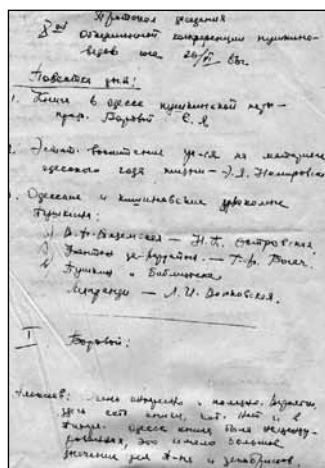 Протокол заседания
8ой
объединенной конференции пушкино-
ведов юга 20/VI 88г.
Повестка дня:
1. Книга в Одессе пушкинской поры —
проф. Боровой С.Я
2. Эстет. воспитание уч-ся на материале
одесского года жизни — Э.Я. Немировская
Одесские и кишиневские
Пушкина:
В.Ф. Вяземская — Н.П. Островская
— Г.Ф. Богач.
в) Пушкин и библиотека
Липранди — Л.И. Волковская.
I Боровой:
Алексеев: Очень интересно и полезно. Вероятно,
здесь есть книги, кот. нет и в
Одессе книга была
это имело большое
значение для П-на и декабристов.